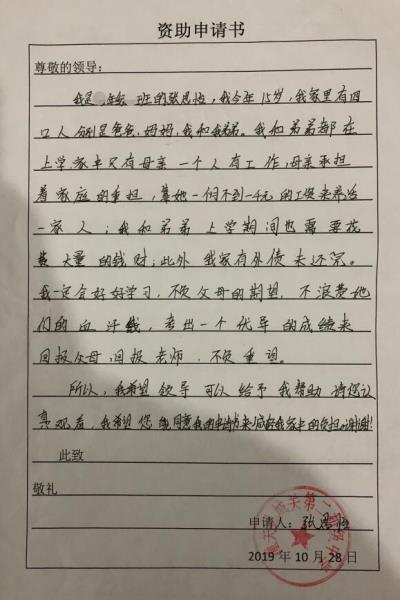 资助申请书
尊敬的领导：
我是 班的张思恒，我今年15岁，我家里有四
口人 别是爸爸、妈妈、我和我弟弟。我和弟弟都在
上学家中只有母亲一个人有工作，母亲承担
着家庭的重担，靠她一个不到一千元的工资来养活
一家人；我和弟弟上学期间也需要花
费大量的钱财；此外我家有外债未还完。
我一定会好好学习，不负父母的期望，不浪费她
们的血汗钱，考出一个优异的成绩来
回报父母，回报老师，不负重望。
所以，我希望领导可以给予我帮助 请您认
真观看，我希望您能同意我的申请书来减轻我家中的负担。谢谢！
此致
敬礼
申请人：张思恒
2019年10月28日
城关第二